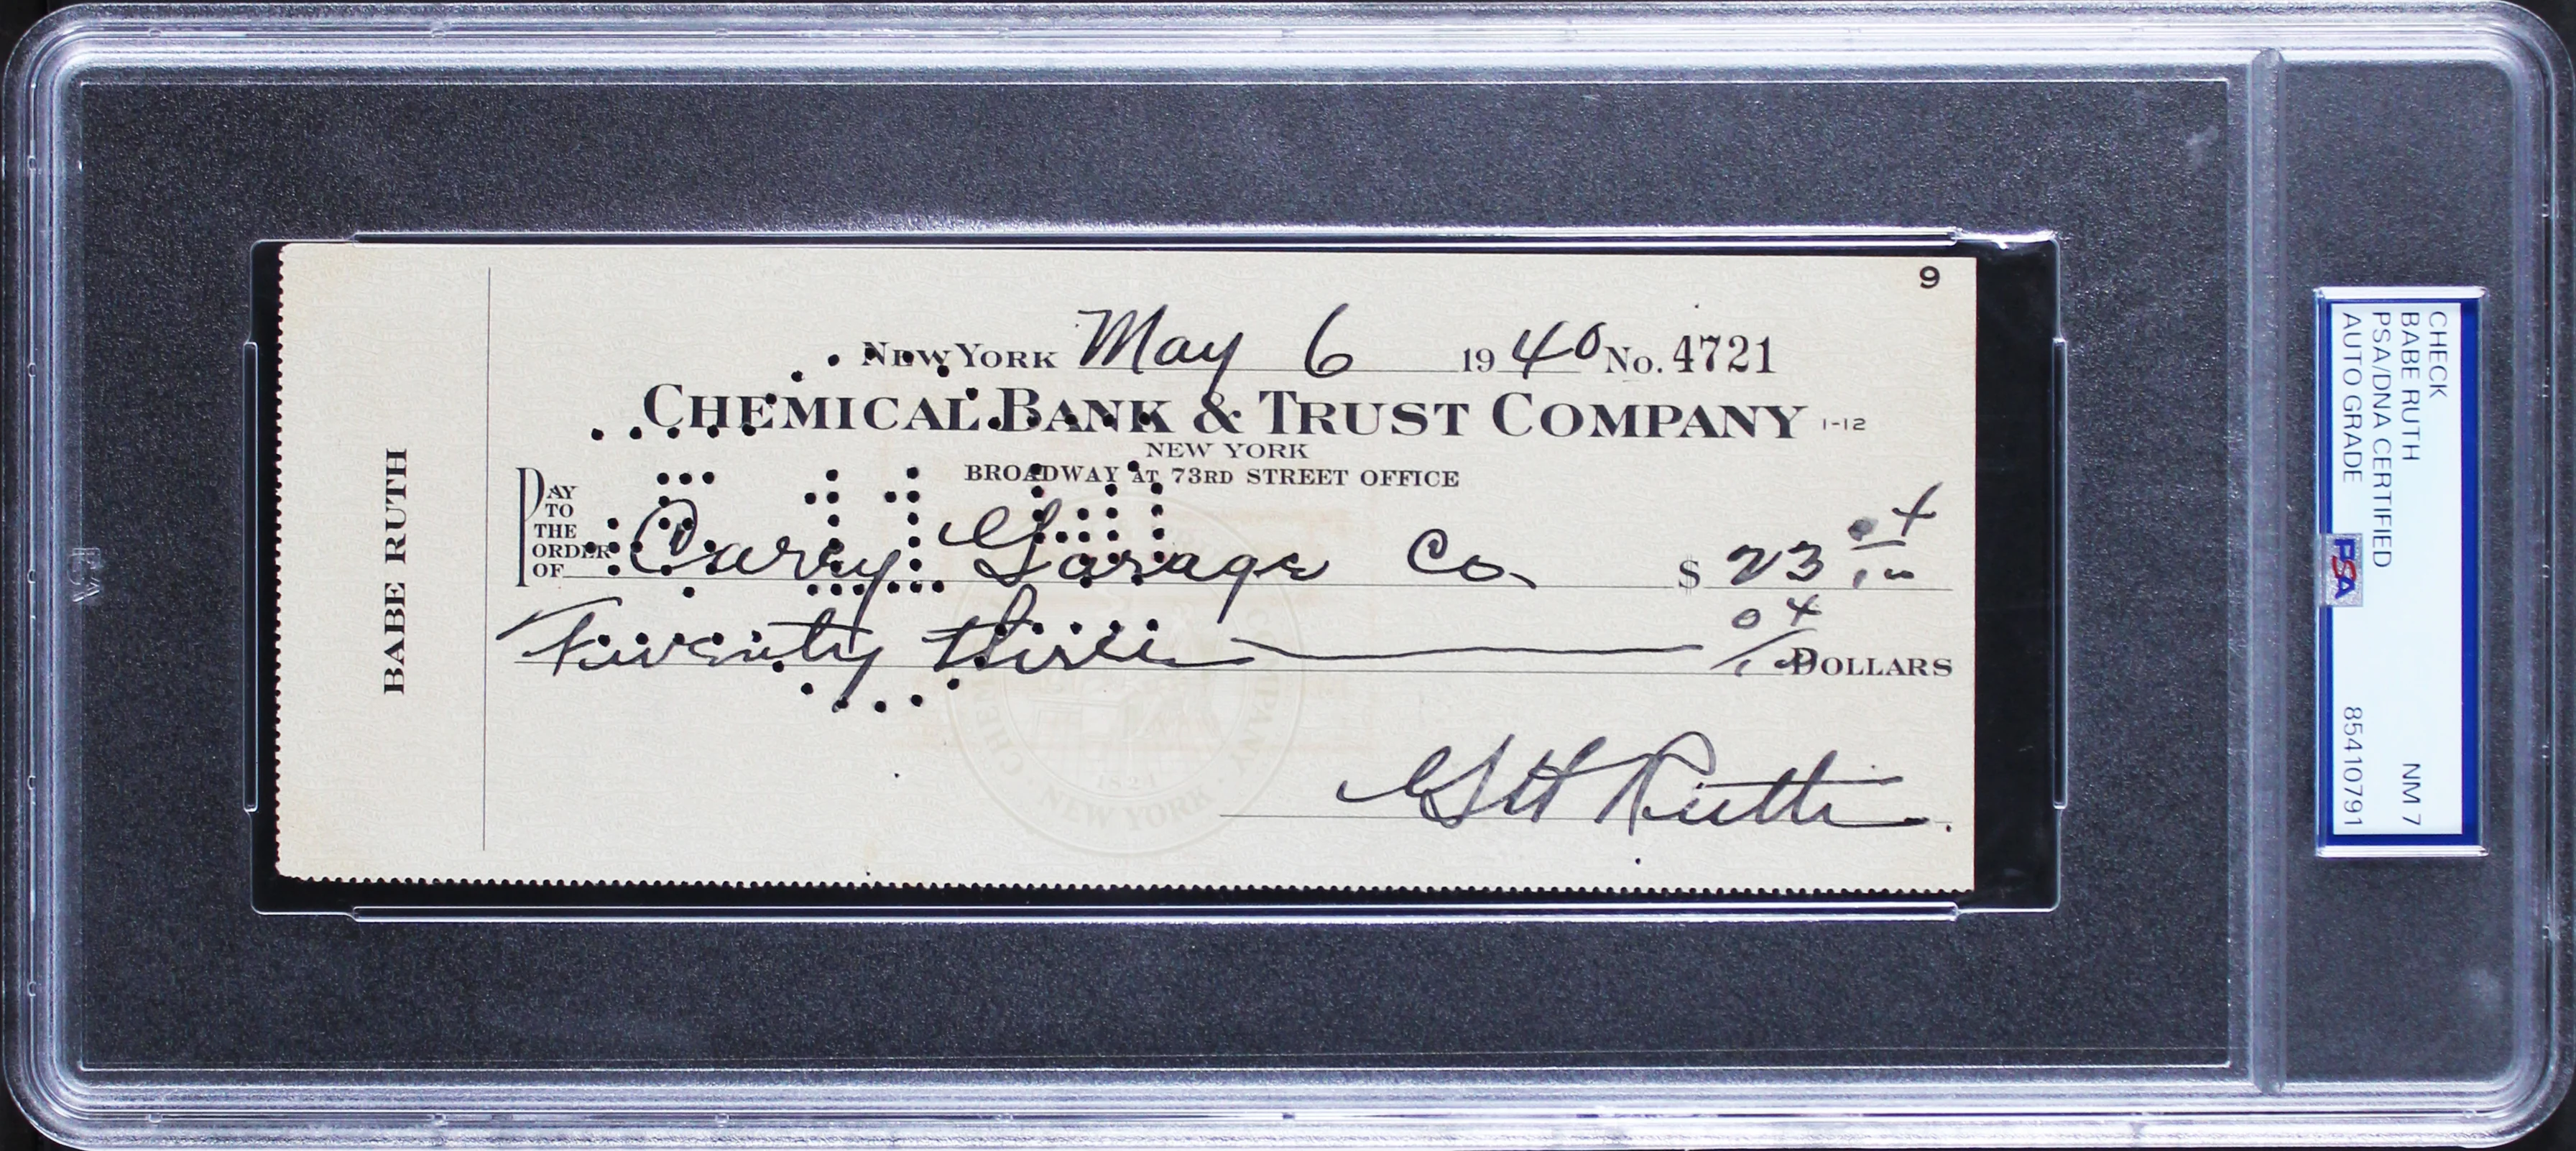 9
New York May 6 1940 No. 4721
Chemical Bank & Trust Company 1-12
NEW YORK
BROADWAY AT 73RD STREET OFFICE
PAY TO THE ORDER OF Carey Garage Co. $ 23 04/100
Twenty three 04/100 DOLLARS
G H Ruth
BABE RUTH
CHEMICAL COMPANY
1824
NEW YORK
CHECK
BABE RUTH NM 7
PSA/DNA CERTIFIED
AUTO GRADE 85410791
PSA